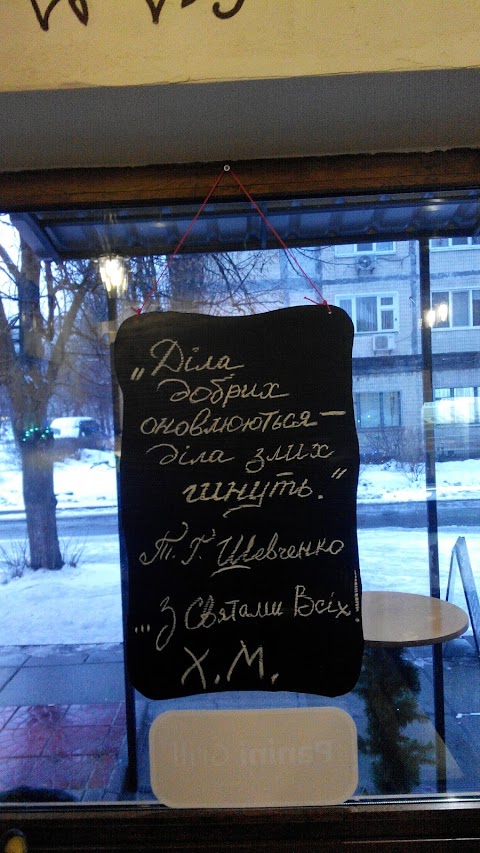 „Діла
добрих
оновлюються –
діла злих
гинуть.“
Т. Г. Шевченко
...З Святами Всіх.
Х.М.
Panini Grill